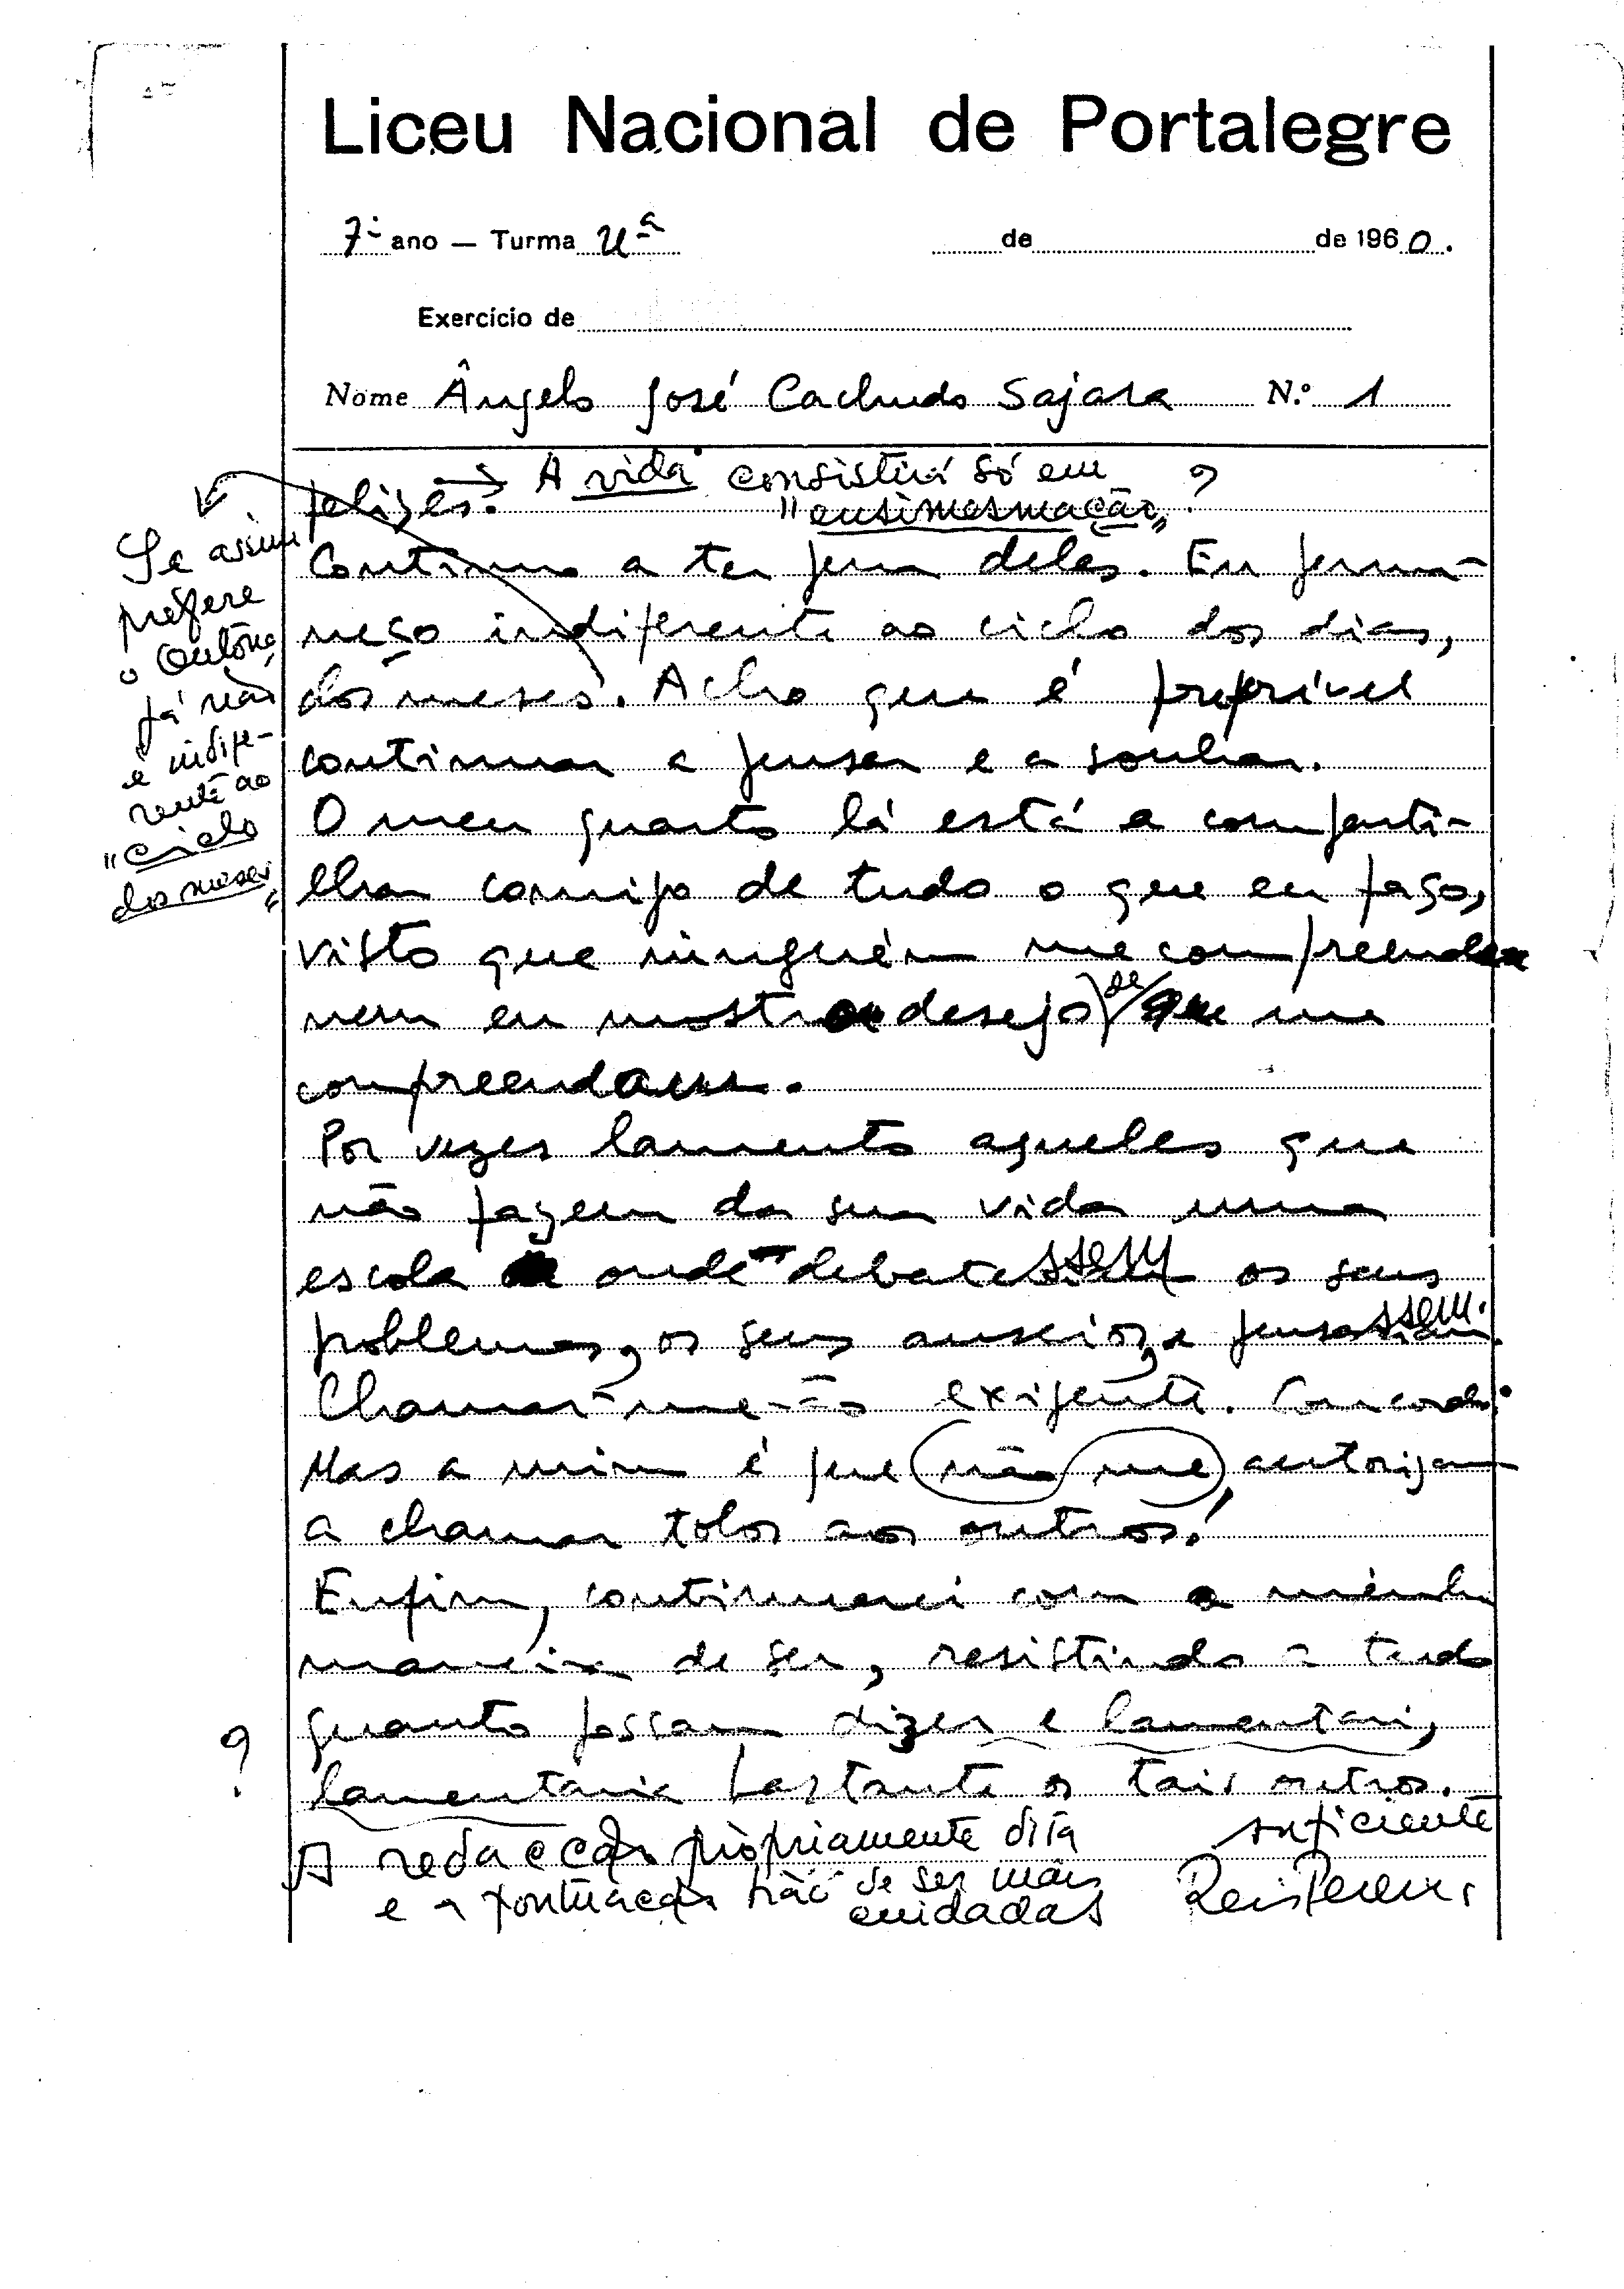 Liceu Nacional de Portalegre
7º ano — Turma Uª de de 1960.
Exercício de
Nome Ângelo José Cachudo Sajara N.º 1
felizes. → A vida consistirá só em
"ensimesmação" ?
Se assim
prefere
o Outono,
já não
é indife-
rente ao
"ciclo
dos meses"
Continuo a ter pena deles. Eu perma-
neço indiferente ao ciclo dos dias,
dos meses. Acho que é preferível
continuar a pensar e a sonhar.
O meu quarto lá está a comparti-
lhar comigo de tudo o que eu faço,
visto que ninguém me compreende
nem eu mostro desejo de que me
compreendam.
Por vezes lamento aqueles que
não fazem da sua vida uma
escola onde debatessem os seus
problemas, os seus anseios, e pensassem.
Chamar-me-ão exigente. Concordo.
Mas a mim é que não me autorizam
a chamar tolos aos outros!
Enfim, continuarei com a minha
maneira de ser, resistindo a tudo
quanto possam dizer e lamentarei,
? lamentaria bastante os tais outros.
A redacção pròpriamente dita
e a pontuação hão de ser mais
cuidadas
suficiente
Reis Pereira